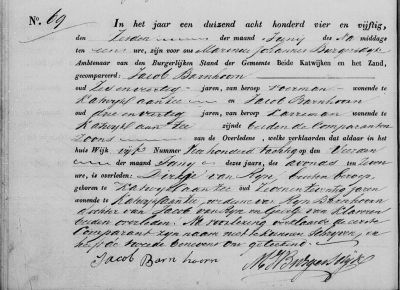 N.o 69
In het jaar een duizend acht honderd vier en vijftig,
den Zesden der maand Juny des Na middags
ten ure, zijn voor ons Marinus Johannes Burgersdijk
Ambtenaar van den Burgerlijken Stand der Gemeente Beide Katwijken en het Zand,
gecompareerd: Jacob Barnhoorn
oud Zes en veertig jaren, van beroep Voerman wonende te
Katwyk aan Zee en Jacob Barnhoorn
oud Drie en veertig jaren, van beroep Karreman wonende te
Katwyk aan Zee zijnde beiden de Comparanten
Zoons van de Overledene, welke verklaarden dat aldaar in het
huis Wijk vyf Nummer Vier honderd op den Vierden
der maand Juny dezes jaars, des avonds ten
ure, is overleden: Dirkje van Ryn, buiten beroep,
geboren te Katwyk aan Zee oud Zeven en zeventig jaren
wonende te Katwyk aan Zee, weduwe van Barnhoorn
dochter van Jacob van Ryn en van
beiden overleden. Na voorlezing verklaarde de eerste
Comparant zyn naam niet te kunnen schryven, en
heeft de tweede benevens ons geteekend.
Jacob Barnhoorn
MJ Burgersdijk